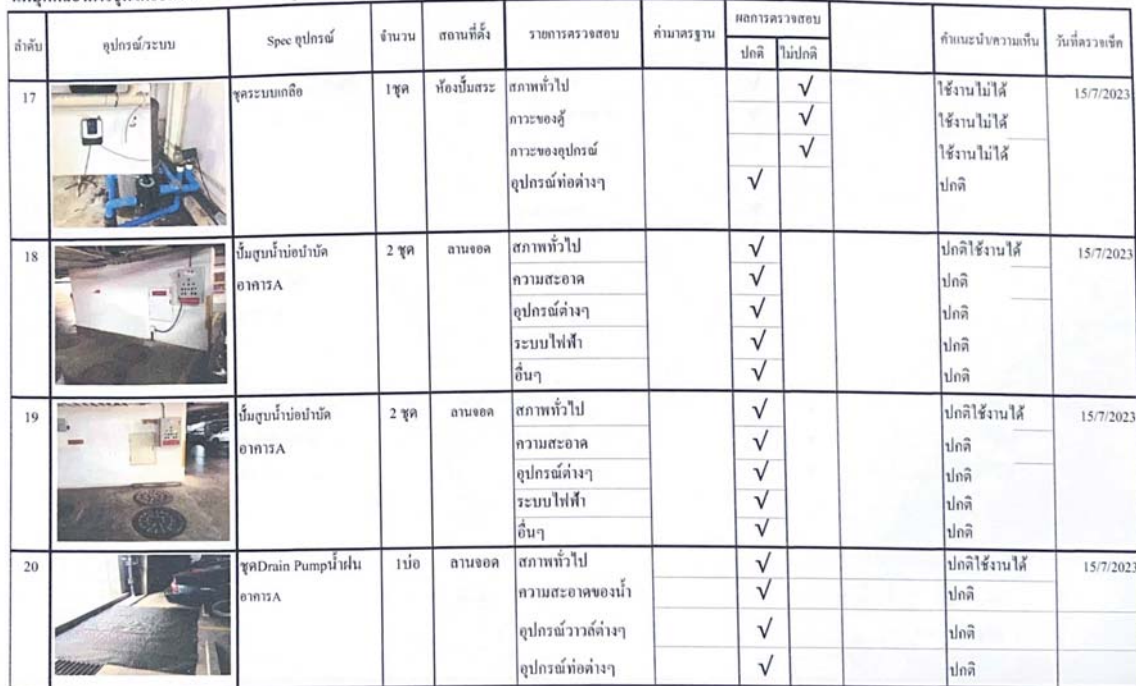 ลำดับ อุปกรณ์/ระบบ Spec อุปกรณ์ จำนวน สถานที่ตั้ง รายการตรวจสอบ ค่ามาตรฐาน ผลการตรวจสอบ คำแนะนำ/ความเห็น วันที่ตรวจเช็ค
ปกติ ไม่ปกติ
17 ชุดระบบเกลือ 1ชุด ห้องปั๊มสระ สภาพทั่วไป √ ใช้งานไม่ได้ 15/7/2023
ภาวะของตู้ √ ใช้งานไม่ได้
ภาวะของอุปกรณ์ √ ใช้งานไม่ได้
อุปกรณ์ท่อต่างๆ √ ปกติ
18 ปั๊มสูบน้ำบ่อบำบัด 2 ชุด ลานจอด สภาพทั่วไป √ ปกติใช้งานได้ 15/7/2023
อาคารA ความสะอาด √ ปกติ
อุปกรณ์ต่างๆ √ ปกติ
ระบบไฟฟ้า √ ปกติ
อื่นๆ √ ปกติ
19 ปั๊มสูบน้ำบ่อบำบัด 2 ชุด ลานจอด สภาพทั่วไป √ ปกติใช้งานได้ 15/7/2023
อาคารA ความสะอาด √ ปกติ
อุปกรณ์ต่างๆ √ ปกติ
ระบบไฟฟ้า √ ปกติ
อื่นๆ √ ปกติ
20 ชุดDrain Pumpน้ำฝน 1บ่อ ลานจอด สภาพทั่วไป √ ปกติใช้งานได้ 15/7/2023
อาคารA ความสะอาดของน้ำ √ ปกติ
อุปกรณ์วาวล์ต่างๆ √ ปกติ
อุปกรณ์ท่อต่างๆ √ ปกติ